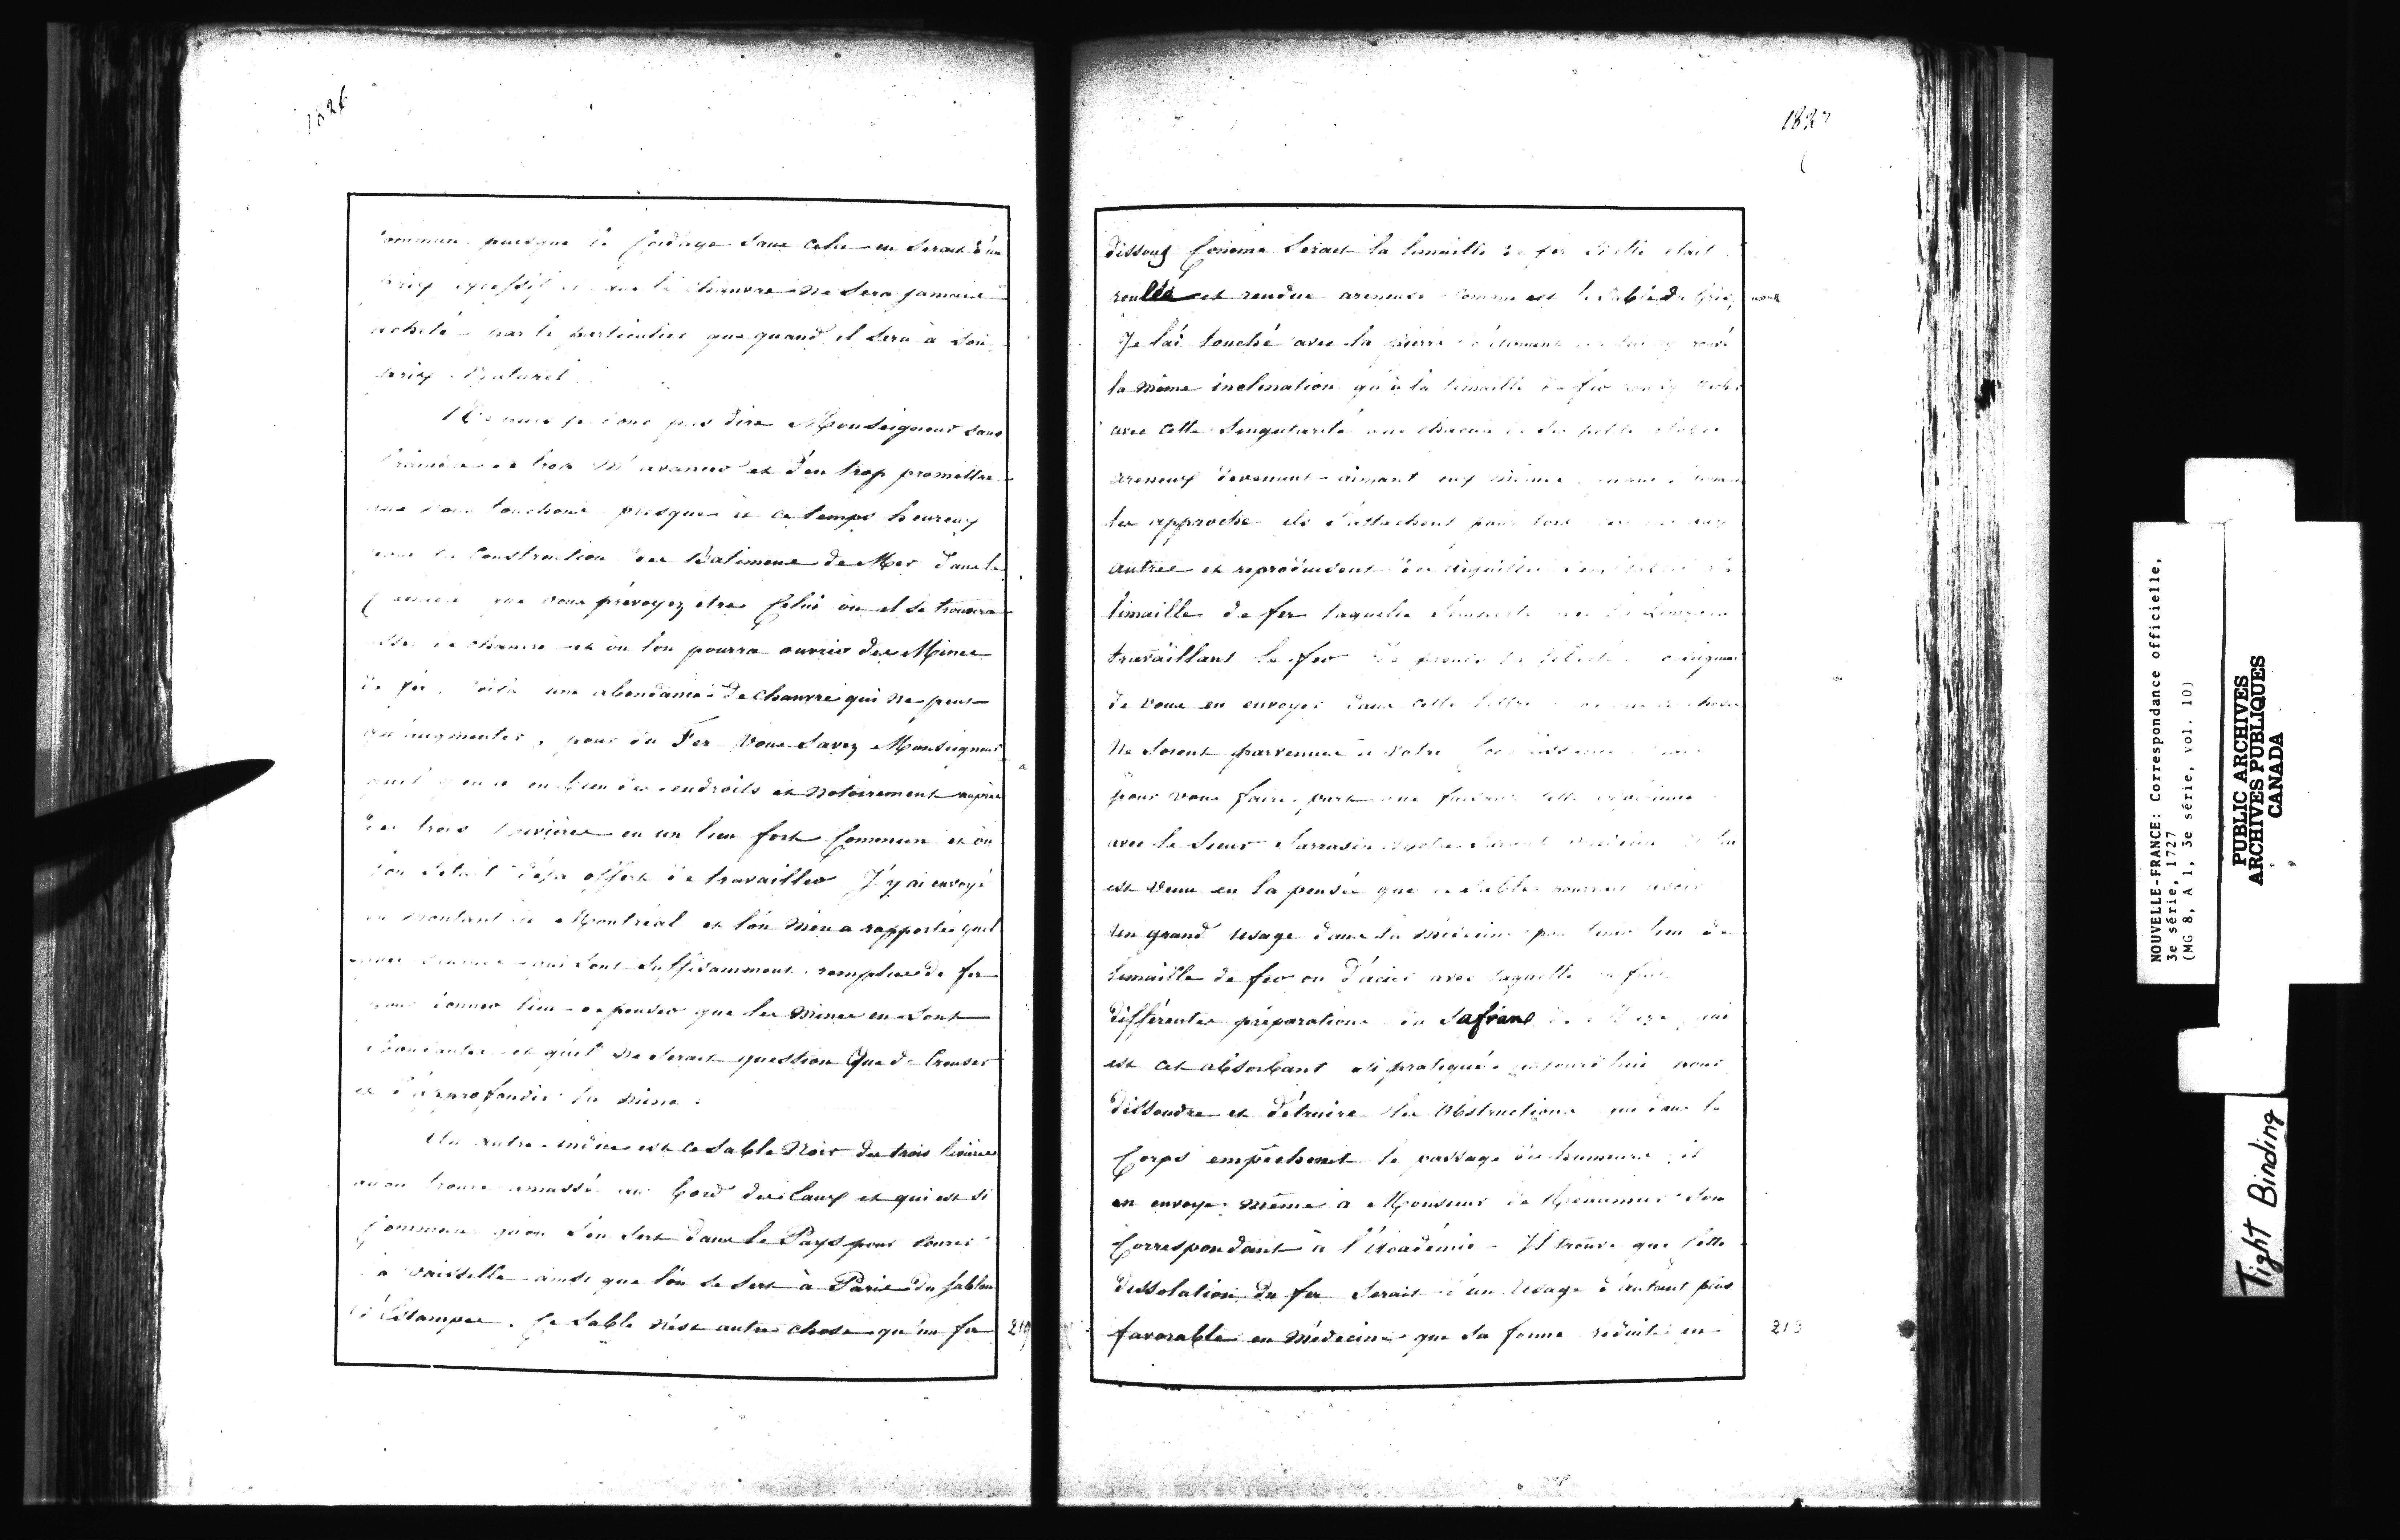 1826
commun puisque le Cordage sans cela en serait d'un
prix excessif et que le chanvre ne sera jamais
acheté par le particulier que quand il sera à son
prix Naturel
Ne puis je donc pas dire Monseigneur sans
trop m'avancer et d'en trop promettre
que nous touchons presque à ce temps heureux
pour la Construction des Batimens de Mer dans le
que vous prévoyez etre Celui où il se trouvera
de chanvre et où l'on pourra ouvrir des Mines
de fer. Voila une abondance de chanvre qui ne peut
qu'augmenter, pour du Fer Vous Savez Monseigneur
qu'il y en a en bien des endroits et notoirement auprès
des trois Rivières en un lieu fort Commun et où
l'on s'était déja offert de travailler J'y ai envoyé
en montant à Montréal et l'on m'en a rapporté quel
qui sont suffisamment remplies de fer
pour donner lieu de penser que les mines en sont
abondantes et qu'il ne serait question Que de Creuser
et d'approfondir la mine.
Un autre indice est ce sable Noir des trois Rivières
qu'on trouve amassé au bord des Eaux et qui est si
Commun qu'on s'en sert dans le Pays pour
la vaisselle ainsi que l'on se sert à Paris du sablon
d'Estampes. Ce sable n'est autre chose qu'un fer
219
1827
dissous Comme Serait la limaille de fer si elle était
roullée et rendue areneuse comme est le sable de Grès,
Je l'ai touché avec la pierre d'aimant
la même inclination qu'à la limaille de fer
avec cette Singularité que chacun de ses petits
areneux devenant aimant eux mêmes
les approche ils s'attachent pour lors aux
autres et reproduisent des aiguilles
limaille de fer laquelle
travaillant le fer
de vous en envoyer dans cette lettre
ne soient parvenues à votre
pour vous faire part que faisant cette expérience
avec le Sieur Sarrasin notre savant médecin
est venu en la pensée que ce sable pourrait avoir
un grand usage dans la médecine pour tenir lieu de
limaille de fer ou d'acier avec laquelle
différentes préparations du Safran de Mars qui
est cet absorbant si pratiqué aujourd'hui pour
dissoudre et détruire les Obstructions qui dans le
Corps empêchent le passage des humeurs, il
en envoye même à Monsieur de Réaumur son
Correspondant à l'Académie. Il trouve que cette
dissolution du fer serait d'un usage d'autant plus
favorable en médecine que sa forme réduite en
213
NOUVELLE-FRANCE: Correspondance officielle,
3e série, 1727
(MG 8, A 1, 3e série, vol. 10)
PUBLIC ARCHIVES
ARCHIVES PUBLIQUES
CANADA
Tight Binding